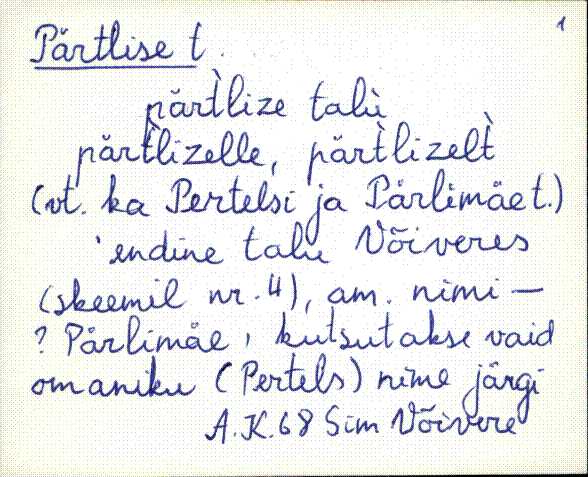 1
Pärtlise t.
pärt̀lize talù
pärt̀lizelle, pärt̀lizelt̀
(vt. ka Pertelsi ja Pärlimäe t.)
'endine talu Võiveres
(skeemil nr. 4), am. nimi —
? Pärlimäe, kutsutakse vaid
omaniku (Pertels) nime järgi
A.K. 68 Sim Võivere